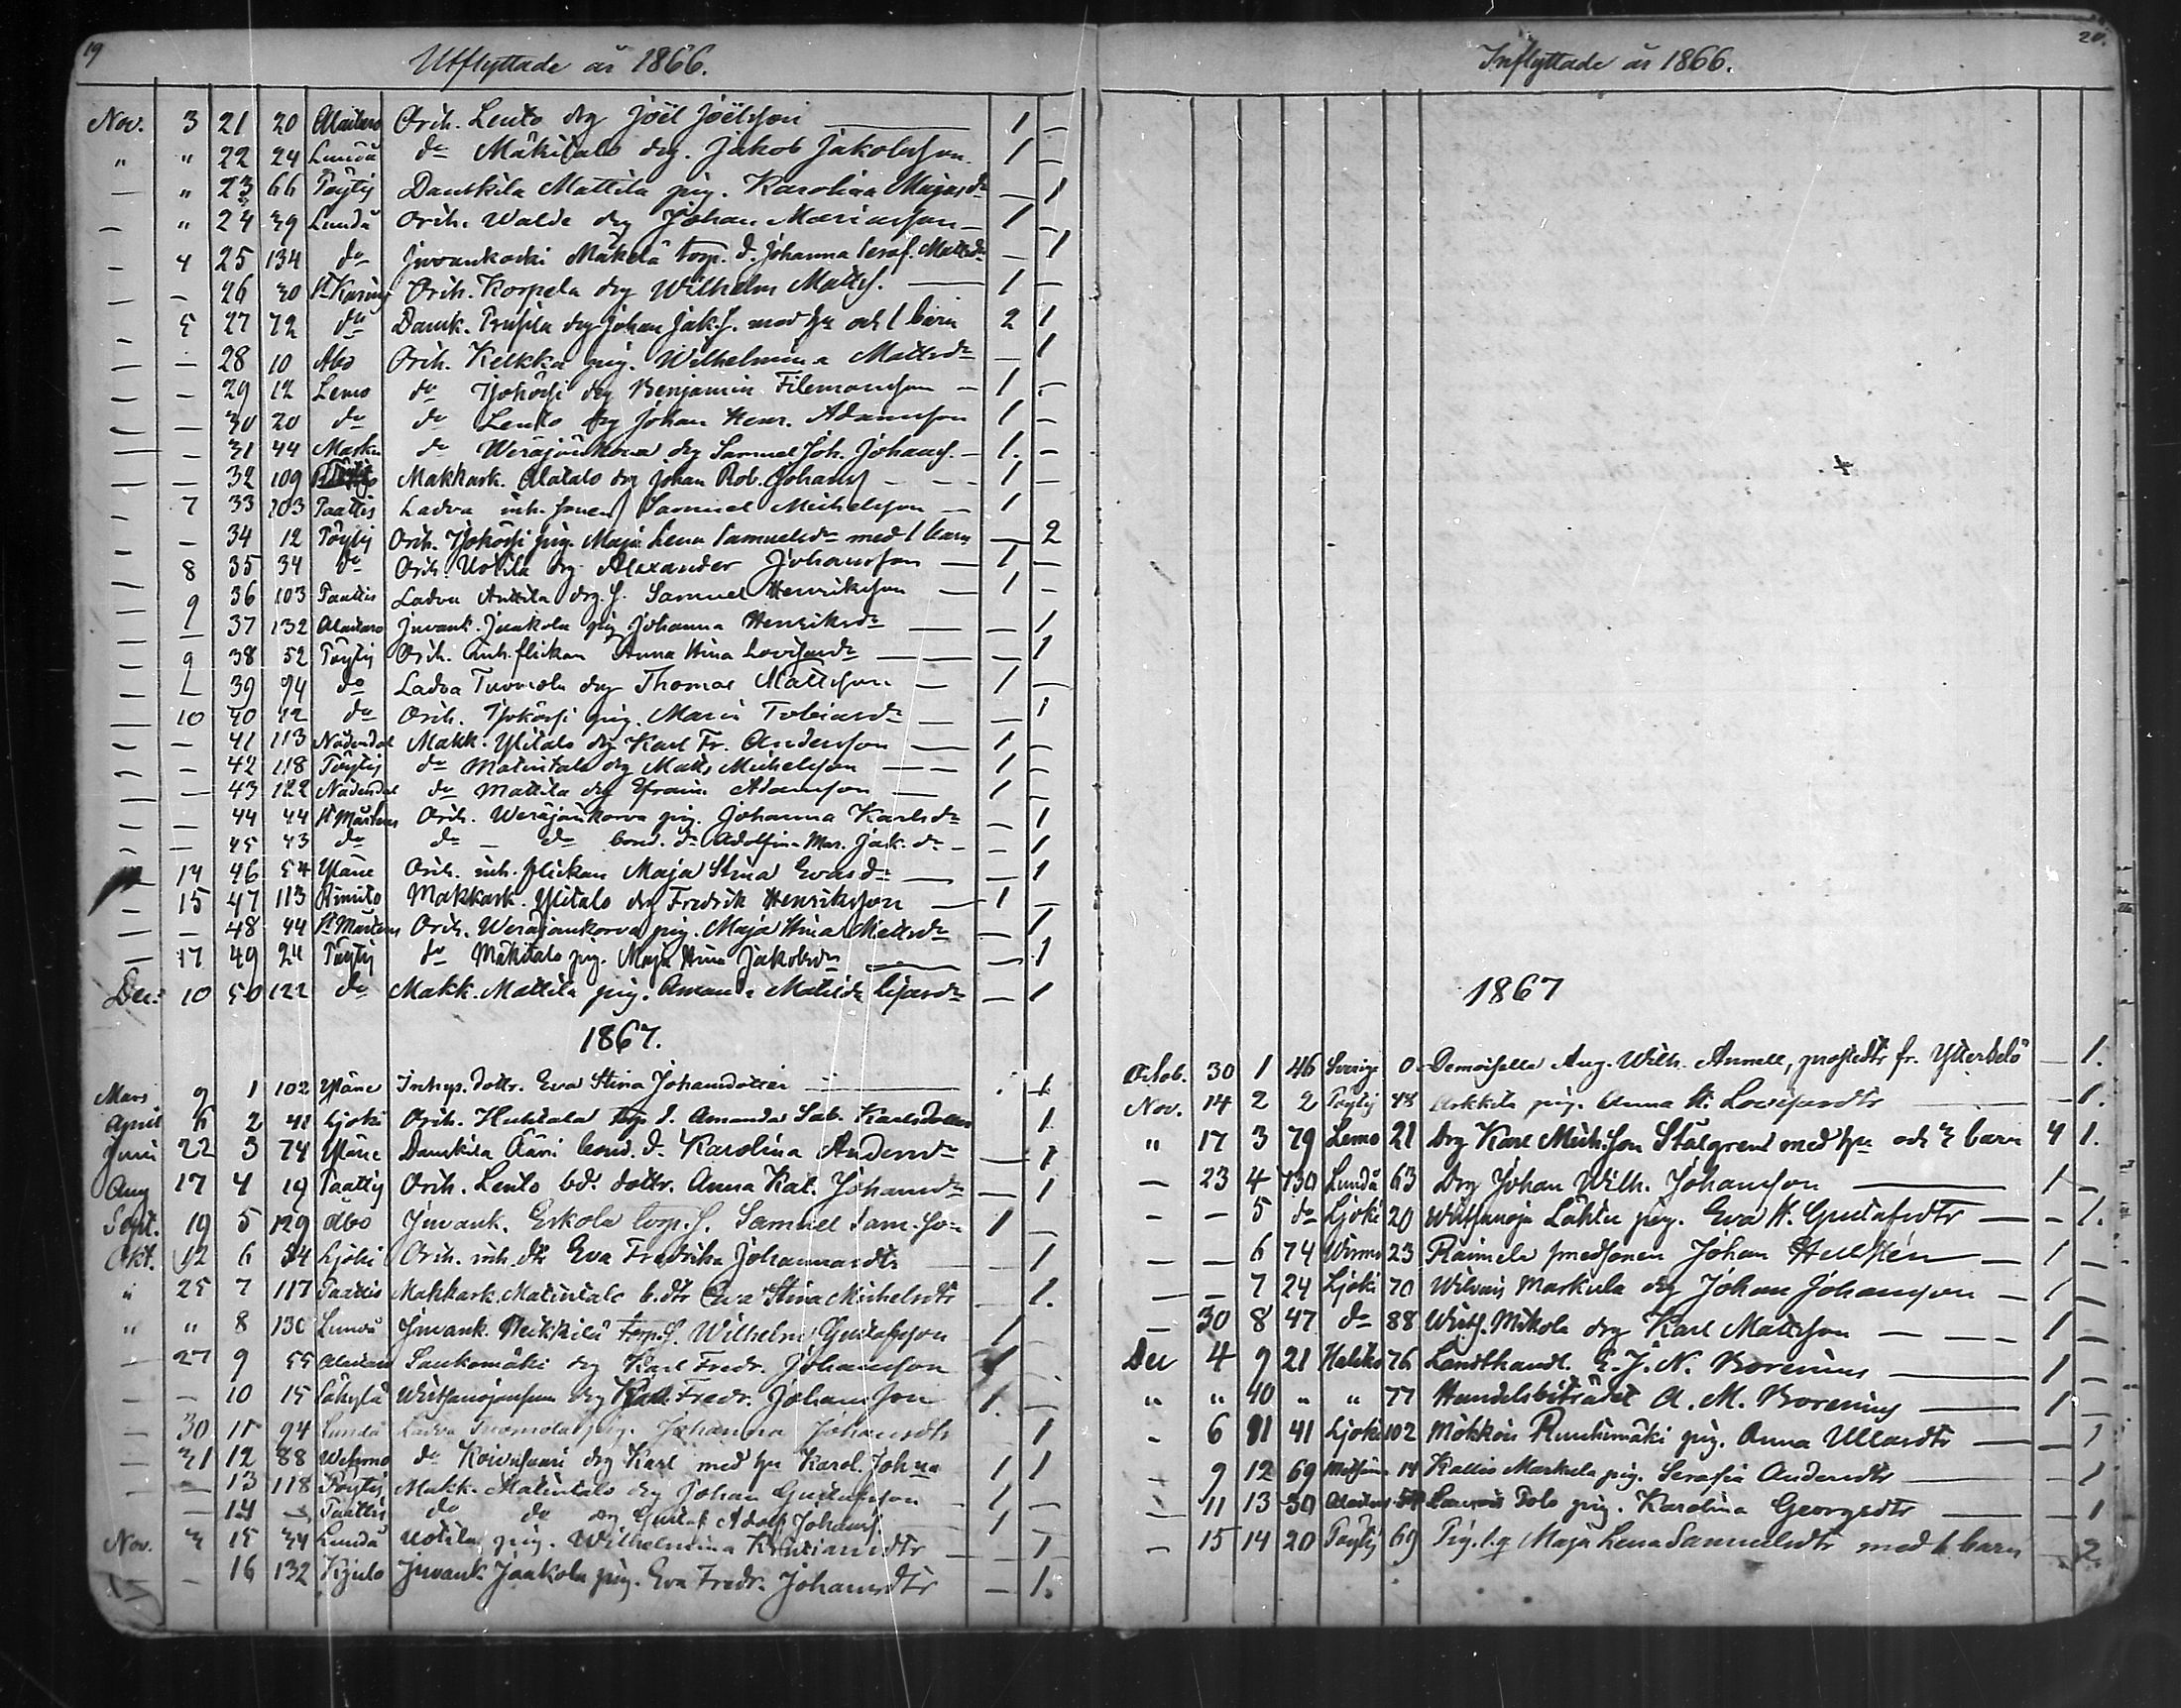 19
Utflyttade år 1866.
Nov. 3 21 20 Alastaro Orih. Lento drg Joël Joëlsson — 1 —
" " 22 24 Lundå do Mäkitalo drg. Jakob Jakobsson. 1 —
— " 23 66 Pöytis Danskila Mattila pig. Karolina Majasdr — 1
— " 24 39 Lundå Orih. Walde drg Johan Mariasson — 1 —
— 4 25 134 do Juvankoski Mäkelä torp. d. Johanna Seraf. Mattsdr — 1
— — 26 30 St Karins Orih. Korpela drg Wilhelm Matts. — 1 —
— 5 27 72 do Dansk. drg Johan Jak.s. med hu och 1 barn 2 1
— — 28 10 Åbo Orih. Keikka pig. Wilhelmina Mattsdr — 1
— — 29 12 Lemo do drg Benjamin Filemonsson — 1 —
— — 30 20 do do Lento drg Johan Henr. Adamsson 1 —
— — 31 44 Masku do Weräjänkorva drg Samuel Joh. Johans. — 1. —
— — 32 109 Makkark. Alatalo drg Johan Rob. Johanss — 1 —
— 7 33 103 Paattis Ladva inh. sonen Samuel Michelsson — 1
— — 34 12 Pöytis Orih. pig. Maja Lena Samuelsdr med 1 barn — 2
— 8 35 34 do Orih. Uotila drg. Alexander Johansson — 1 —
— 9 36 103 Paattis Ladva Anttila drg. s. Samuel Henriksson — 1 —
— — 37 132 Alastaro Juvank. Jaakola pig Johanna Henriksdr — — 1
— 9 38 52 Pöytis Orih. inh. flickan Anna Stina Lovisasdr — — 1
— — 39 94 do Ladva Tuomola drg Thomas Mattsson — 1 —
— 10 40 12 do Orih. pig. Maria Tobiasdr — — 1
— — 41 113 Nådendal Makk. Ylitalo drg Karl Fr. Andersson — 1 —
— — 42 118 Pöytis do Matintalo drg Matts Michelsson — 1 —
— — 43 122 Nådendal do Mattila drg Efraim Adamsson — 1 —
— — 44 44 St Mårtens Orih. Weräjänkorva pig. Johanna Karlsdr — 1
— — 45 43 do do — do bond. dr Adolfina Mar. Jak. dr — — 1
14 46 54 Yläne Orih. inh. flickan Maja Stina Evasdr — — 1
— 15 47 113 Kimito Makkark. Ylitalo drg Fredrik Henriksson — 1 —
— — 48 44 St Mårtens Orih. Weräjänkorva pig. Maja Stina Mattsdr — 1
— 17 49 24 Pöytis do Mäkitalo pig. Maja Stina Jakobsdr — — 1
Dec. 10 50 122 do Makk. Mattila pig. Amanda Matilda — 1
1867.
Mars 9 1 102 Yläne Inhys. dottr. Eva Stina Johansdotter — 1
April 6 2 41 Ljoki Orih. Huhtala torp d. Amanda Sab. Karlsdotter 1
Juni 22 3 74 Yläne Danskila Ääri bond. d. Karolina Andersdr — 1
Aug 17 4 19 Paattis Orih. Lento bd. dottr. Anna Kat. Johansdr — 1
Sept. 19 5 129 Åbo Juvank. Eskola torp. s. Samuel Sam. son 1 —
Okt. 12 6 54 Ljoki Orih. inh. dtr Eva Fredrika Johannasdtr — 1
" 25 7 117 Paattis Makkark. Matintalo b. dtr Eva Stina Michelsdtr — 1.
" " 8 130 Lundå Juvank. Heikkilä torp. s. Wilhelm Gustafsson 1 —
— 27 9 55 Alastaro Saukomäki drg Karl Fredr. Johansson 1 —
— — 10 15 Säkylä drg Karl Fredr. Johansson 1. —
— 30 11 94 Lundå Ladva Tuomola pig. Johanna Johansdtr 1
— 31 12 88 Wehmo do Koivusaari drg Karl med hu Karol. 1 1
— 13 118 Pöytis Makk. Matintalo drg Johan Gustafsson 1 —
— 14 — Paattis do do drg Gustaf Adolf Johanss 1 —
Nov. 3 15 34 Lundå Uotila pig. Wilhelmina Kristiansdtr — 1
— — 16 132 Kjulo Juvank Jaakola pig. Eva Fredr. Johansdtr — 1.
20.
Inflyttade år 1866.
1867
Octob. 30 1 46 Sverige 0 Demoiselle Aug. Wilh. Annell, fr. Ytterselö — 1.
Nov. 14 2 2 Pöytis 48 Arkkila pig. Anna St. Lovisasdtr — 1.
" 17 3 79 Lemo 21 Drg Karl Mich.son Stålgren med hu och 3 barn 4 1.
— 23 4 130 Lundå 63 Drg Johan Wilh. Johansson — 1 —
— — 5 do Ljoki 20 Lähtee pig. Eva St. Gustafsdtr — — 1.
— — 6 74 Wirmo 23 Raimela smedsonen Johan Hellstén — 1 —
— — 7 24 Ljoki 70 Markula drg Johan Johansson — 1 —
— 30 8 47 do 88 Mikola drg Karl Mattsson — 1 —
Dec 4 9 21 Haliko 76 Landthandl. E. J. N. Borenius — 1 —
" " 10 " " 77 Handelsbiträdet A. M. Borenius — 1 —
— 6 11 41 Ljoki 102 Mökköis Ruuhimäki pig. Anna Ullasdtr — — 1
— 9 12 69 14 Kallio Markula pig. Serafia Andersdtr — — 1
— 11 13 30 Alastaro Polo pig. Karolina Georgsdtr — 1
— 15 14 20 Pöytis 69 Pig. Maja Lena Samuelsdtr med 1 barn — 2.